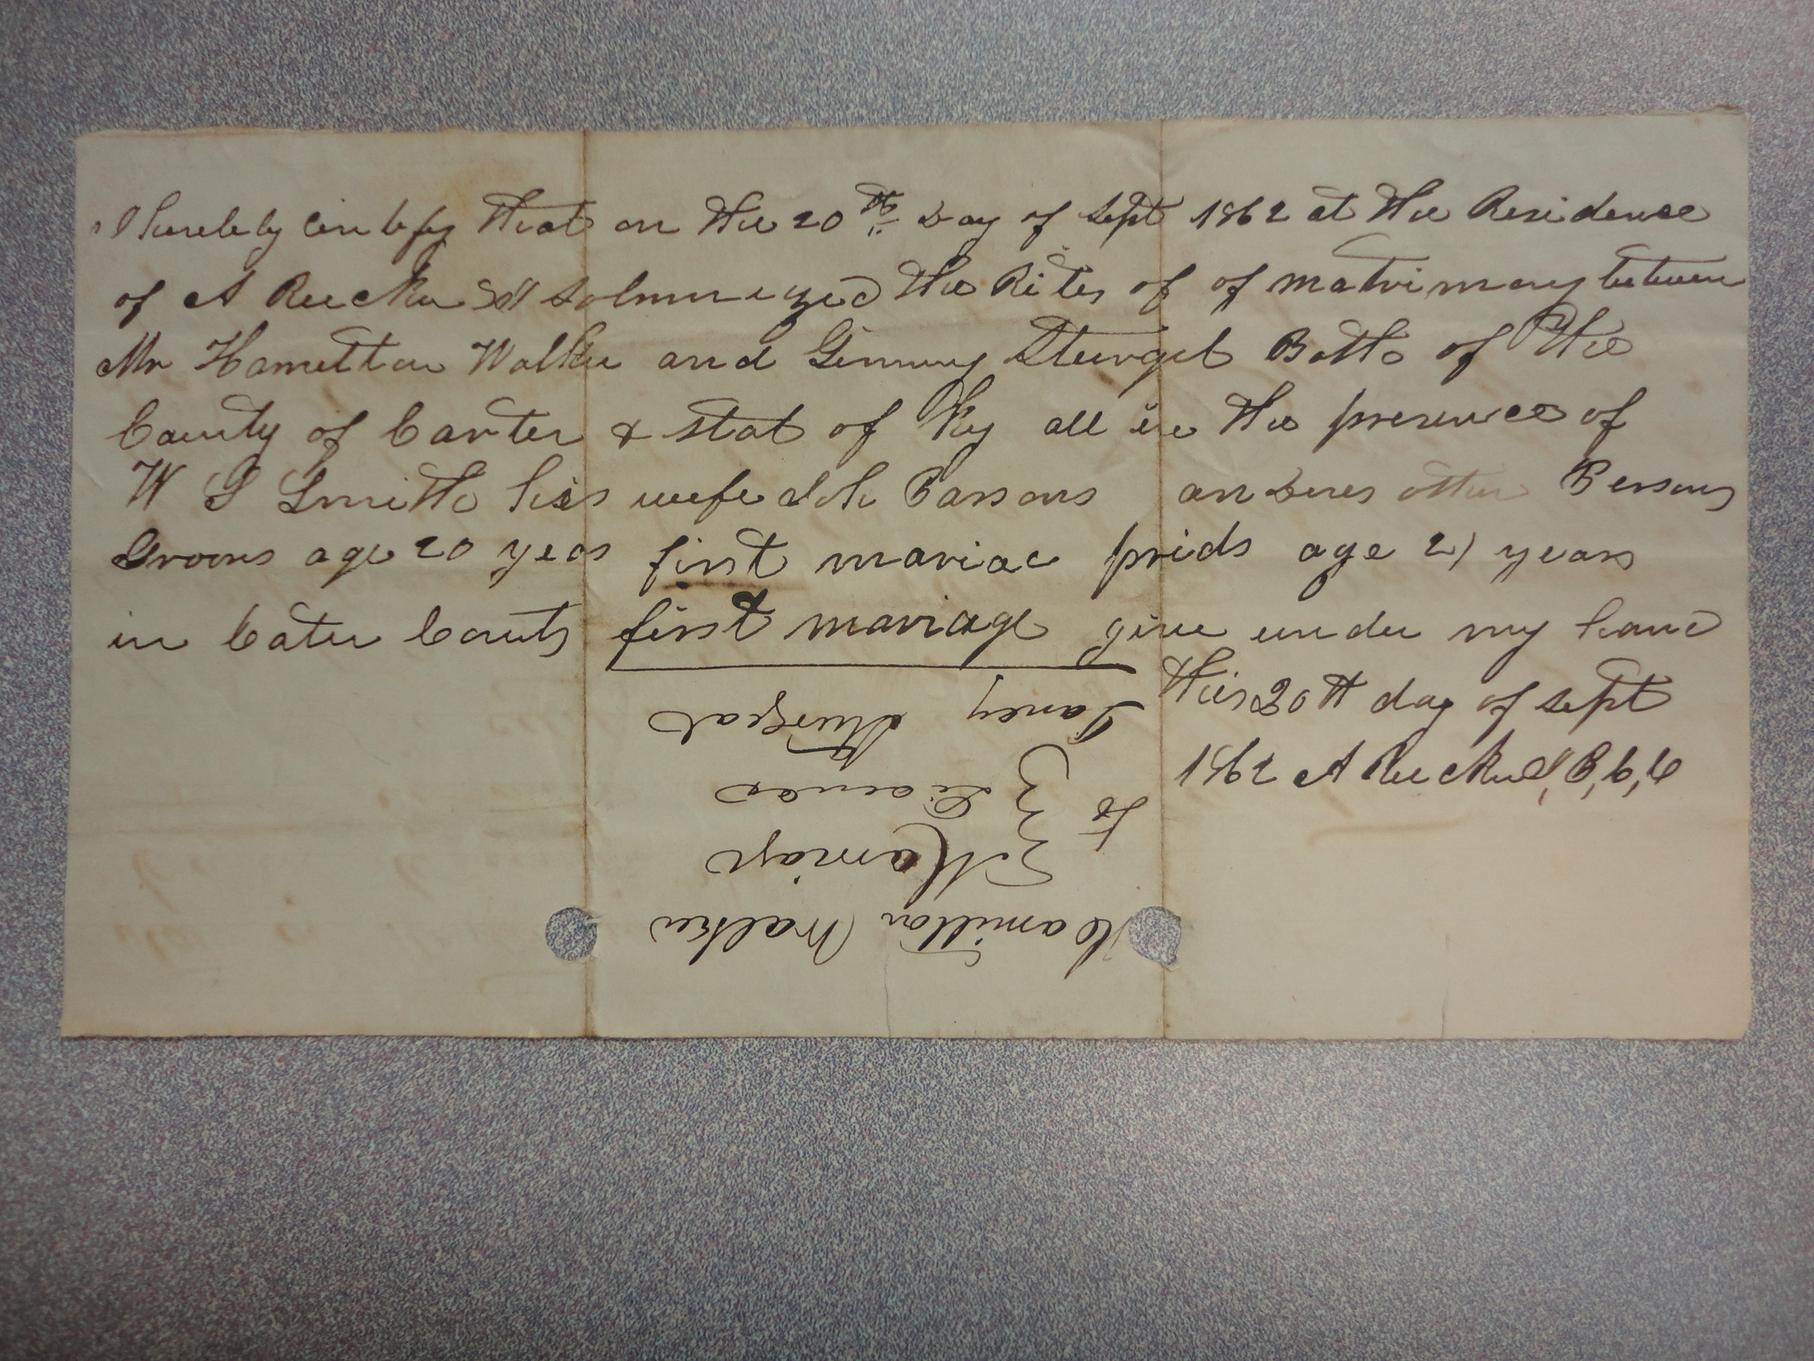 I hereby certify that on the 20th Day of Sept 1862 at the Residence
of A Rucker I solmnized the Rites of of matrimony between
Mr Hamelton Walker and Ginny Sturgil Both of the
County of Carter & stat of Ky all in the presence of
W S Smith his wife Parsons other Persons
Grooms age 20 years first mariac prids age 21 years
in Cater County first mariage give under my hand
this 20th day of sept
1862 A Rucker
Hamilton Walker
Mariage
to
Licence
Sturgeal